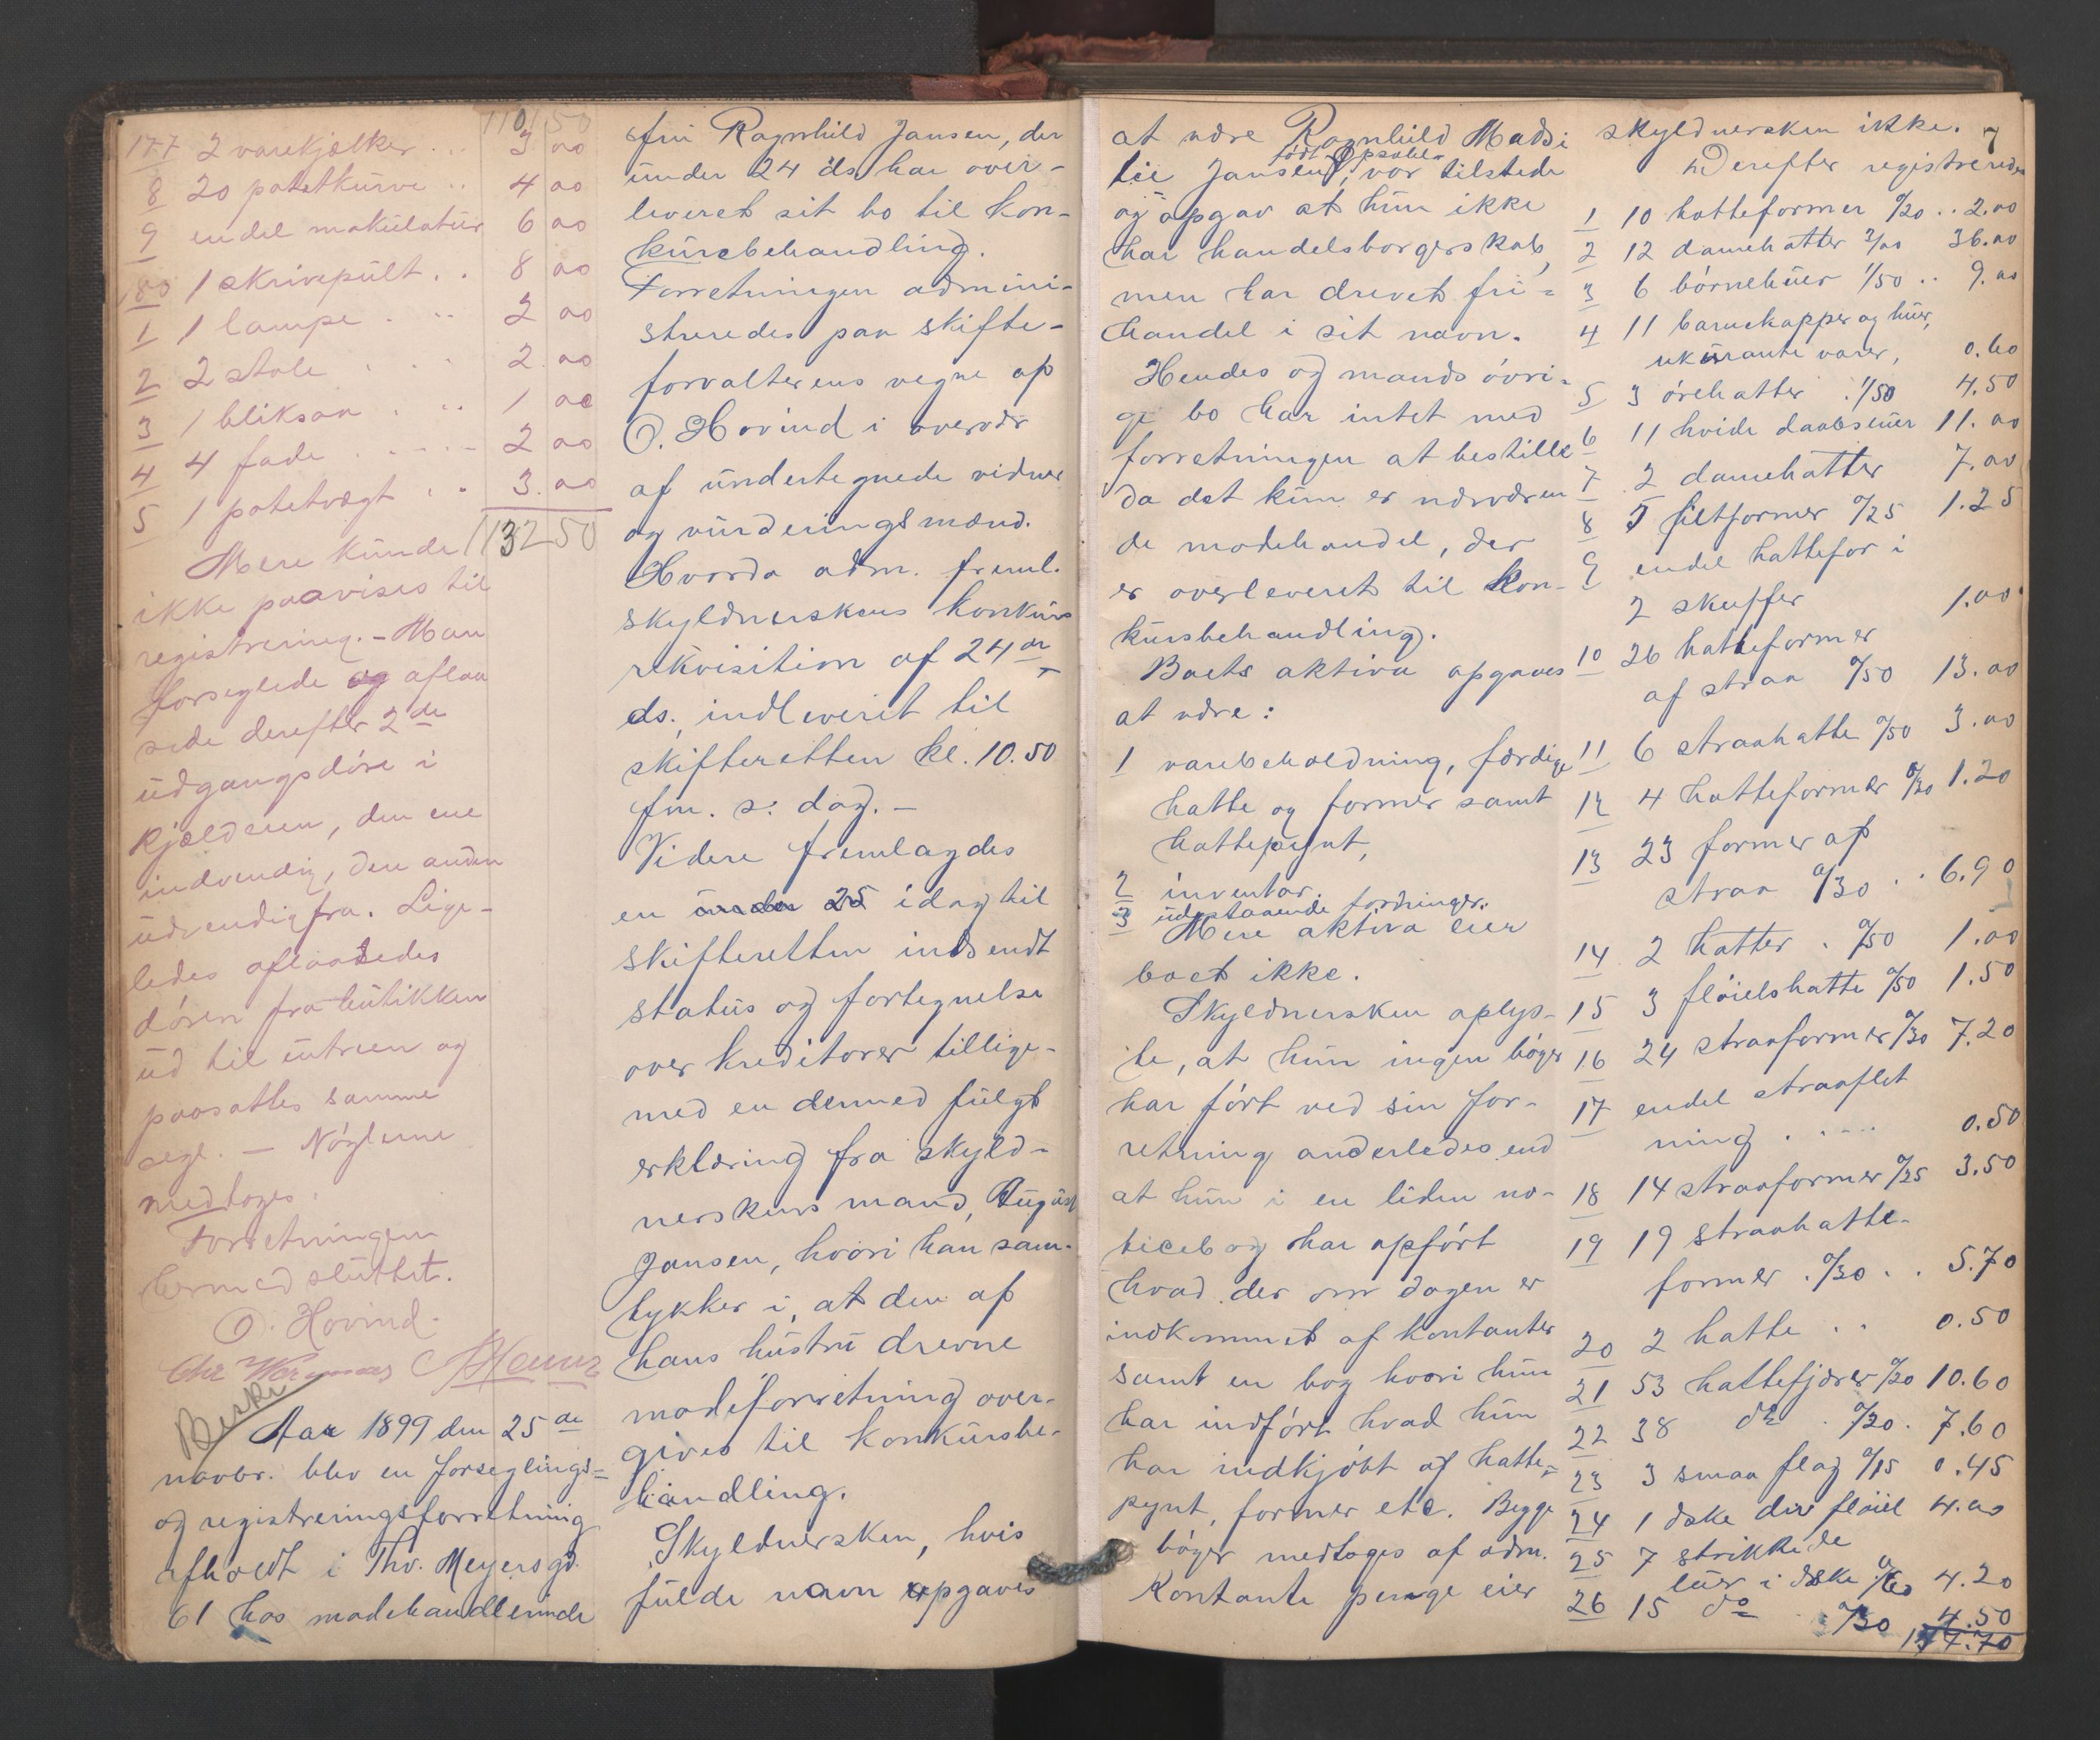 1101 50
177 2 varekjælker ... 3 00
8 20 potetkurve .. 4 00
9 endel makulatur 6 00
180 1 skrivepult . . 8 00
1 1 lampe . .. 2 00
2 2 stole . . 2 00
3 1 bliksaa . .. 1 00
4 4 fade . . . . . 2 00
5 1 potetvægt . . 3 00
1132 50
Mere kunde
ikke paavises til
registrering. – Man
forseglede og aflaa
sede derefter 2de
udgangsdöre i
kjælderen, den ene
indvendig, den anden
udvendig fra. Lige-
ledes aflaasedes
dören fra butikken
ud til entreen og
paasattes samme
segl. – Nöglerne
medtoges.
Forretningen
hermed sluttet.
O. Hovind.
Chr
Beskr
Aar 1899 den 25de
novbr. blev en forseglings=
og registreringsforretning
afholdt i Thv. Meyers gd.
61 hos modehandlerinde
fru Ragnhild Jansen, der
under 24 ds har over-
leveret sit bo til kon-
kursbehandling.
Forretningen admini-
streredes paa skifte-
forvalterens vegne af
O. Hovind i overvær
af undertegnede vidner
og vurderingsmænd.
Hvorda adm. freml.
skyldnerskens konkurs
rekvisition af 24de
ds. indleveret til
skifteretten kl. 10.50
fm. s. dag. –
Videre fremlagdes
en under 25 idag til
skifteretten indsendt
status og fortegnelse
over kreditorer tillige-
med en dermed fulgt
erklæring fra skyld-
nerskens mand, August
Jansen, hvori han sam-
tykker i, at den af
hans hustru drevne
modeforretning over-
gives til konkursbe-
handling.
Skyldnersken, hvis
fulde navn opgaves
at være Ragnhild Mathi
lie Jansen, var tilstede
född
og opgav at hun ikke
har handelsborgerskab,
men har drevet fri=
handel i sit navn.
Hendes og mands övri=
ge bo har intet med
forretningen at bestille
da det kun er nærværen
de modehandel, der
er overleveret til kon-
kursbehandling.
Boets aktiva opgaves
at være:
1 varebeholdning, færdige
hatte og former samt
hattepynt,
2 inventar.
3 udestaaende fordringer.
Mere aktiva eier
boet ikke.
Skyldnersken oplys-
te, at hun ingen böger
har fört ved sin for-
retning anderledes end
at hun i en liden no-
ticebog har opfört
hvad der om dagen er
indkommet af kontanter
samt en bog hvori hun
har indfört hvad hun
har indkjöbt af hatte=
pynt, former etc. Begge
böger medtoges af adm.
Kontante penge eier
skyldnersken ikke. 7
Derefter registreredes
1 10 hatteformer 0/20 .. 2.00
2 12 damehatter 3/00 36.00
3 6 börnehuer 1/50 .. 9.00
4 11 barnekapper og huer,
ukurante varer, 0.60
5 3 örehatter . 1/50 4.50
6 11 hvide daabsluer 11.00
7 2 damehatter 7.00
8 5 filtformer 0/25 1.25
9 endel hattefor i
2 skuffer 1.00
10 26 hatteformer
af straa 0/50 13.00
11 6 straahatte 0/50 3.00
12 4 hatteformer 0/30 1.20
13 23 former af
straa 0/30 . . 6.90
14 2 hatter . 0/50 1.00
15 3 flöielshatte 0/50 1.50
16 24 straaformer 0/30 7.20
17 endel straaflet
ning . . . . . 0.50
18 14 straaformer 0/25 3.50
19 19 straahatte-
former . 0/30 . . 5.70
20 2 hatte . . 0.50
21 53 hattefjærer 0/20 10.60
22 38 do . 0/20 . 7.60
23 3 smaa flag 0/15 0.45
24 1 æske div flöiel 4.00
25 7 strikkede
luer i æske 0/60 4.20
26 15 do . 0/30 4.50